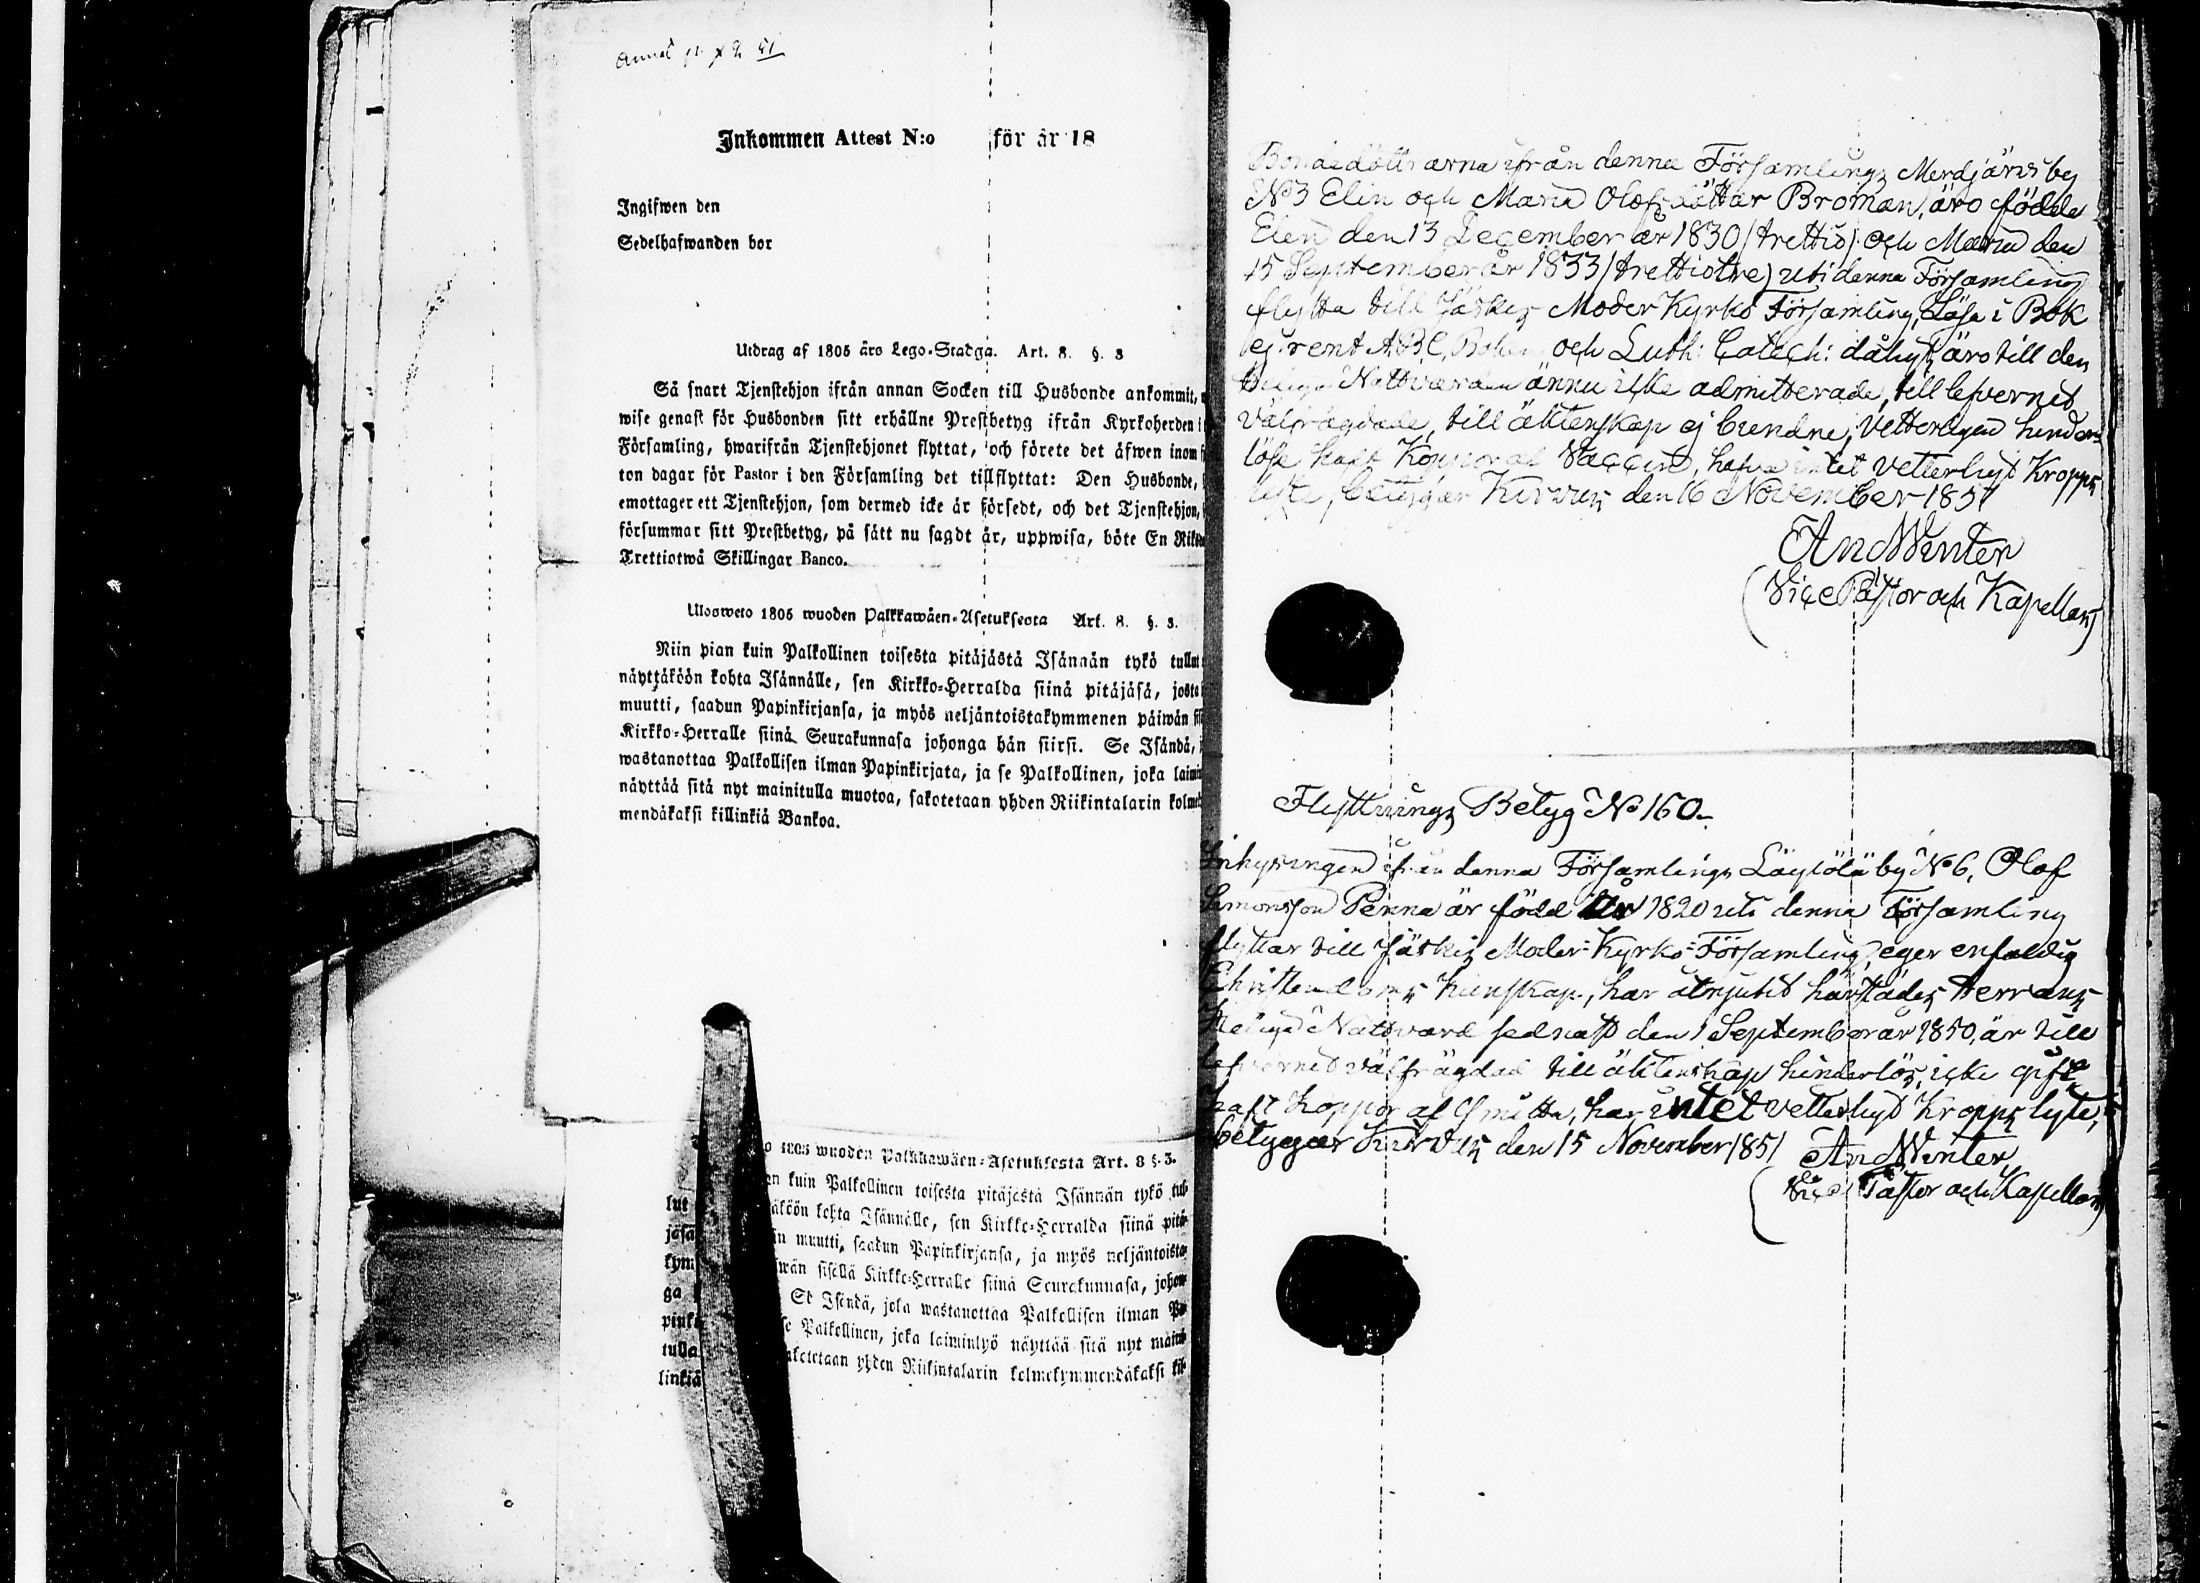 Inkommen Attest N:o för år 18
Ingifwen den
Sedelhafwanden bor
Utdrag af 1805 års Lego-Stadga. Art. 8. §. 3
Så snart Tjenstehjon ifrån annan Socken till Husbonde ankommit,
wise genast för Husbonden sitt erhållne Prestbetyg ifrån Kyrkoherden i
Församling, hwarifrån Tjenstehjonet flyttat, och förete det äfwen inom
ton dagar för Pastor i den Församling det tillflyttat: Den Husbonde,
emottager ett Tjenstehjon, som dermed icke är försedt, och det Tjenstehjon,
försummar sitt Prestbetyg, på sätt nu sagdt är, uppwisa, böte En Riks
Trettiotwå Skillingar Banco.
Ulosweto 1805 wuoden Palkkawäen-Asetuksesta Art. 8. §. 3.
Niin pian kuin Palkollinen toisesta pitäjästä Isännän tykö tullut
näyttäköön kohta Isännälle, sen Kirkko-Herralda siinä pitäjäsä, josta
muutti, saadun Papinkirjansa, ja myös neljäntoistakymmenen päiwän
Kirkko-Herralle siinä Seurakunnasa johonga hän siirsi. Se Isändä,
wastanottaa Palkollisen ilman Papinkirjata, ja se Palkollinen, joka laimin
näyttää sitä nyt mainitulla muotoa, sakotetaan yhden Riikintalarin kolme
mendäkaksi killinkiä Bankoa.
1805 wuoden Palkkawäen-Asetuksesta Art. 8 §. 3.
en kuin Palkollinen toisesta pitäjästä Isännän tykö tul-
lut äköön kohta Isännälle, sen Kirkko-Herralda siinä pitä-
jäsä in muutti, saadun Papinkirjansa, ja myös neljäntoista-
kym wän sisellä Kirkko-Herralle siinä Seurakunnasa, johon-
ga Se Isändä, joka wastanottaa Palkollisen ilman Pa-
pinki se Palkollinen, joka laiminlyö näyttää sitä nyt maini-
tulla aketetaan yhden Riikintalarin kolmekymmendäkaksi kil-
linkiä
Bondedöttrarna ifrån denna Församlings Merdjärvi by
No 3 Elin och Maria Olofsdöttar Broman, äro födde
Elin den 13 December år 1830 (trettio) och Maria den
15 September år 1833 (trettiotre) uti denna Församling
flytta till Jäskis Moder Kyrko Församling, Läsa i Bok
ej rent A.B.C. Boken och Luth: Catech: äro till den
heliga Nattvarden ännu icke admitterade, till lefvernet
välfrägdade, till äktenskap ej bundne, vetterligen hinder-
löse haft Koppor af Vaccin, hafva intet vetterligt Kropps
lyte, betygar Kirvus den 16 November 1851
And Winter
(Vice Pastor och Kapellan)
Flyttnings Betyg No 160.
Inhysingen ifrån denna Församlings by No 6, Olof
Simonsson Penna är född år 1820 uti denna Församling
flyttar till Jäskis Moder-Kyrko-Församling, eger enfaldig
Christendoms kunskap, har åtnjutit härstädes Herrans
Heliga Nattvard sednast den 1 September år 1850, är till
lefvernet välfrägdad till äktenskap hinderlös, icke gift
haft Koppor af Smitta, har intet vetterligt Kropps lyte,
betygar Kirvus den 15 November 1851 And Winter
(Vice Pastor och Kapellan)